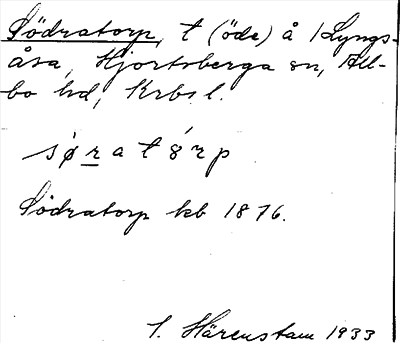 Södratorp, t (öde) å Lyngs-
åsa, Hjortsberga sn, All-
bo hd, Krbs l.
sø̀ratórp
Södratorp kb 1876.
I. Härenstam 1933